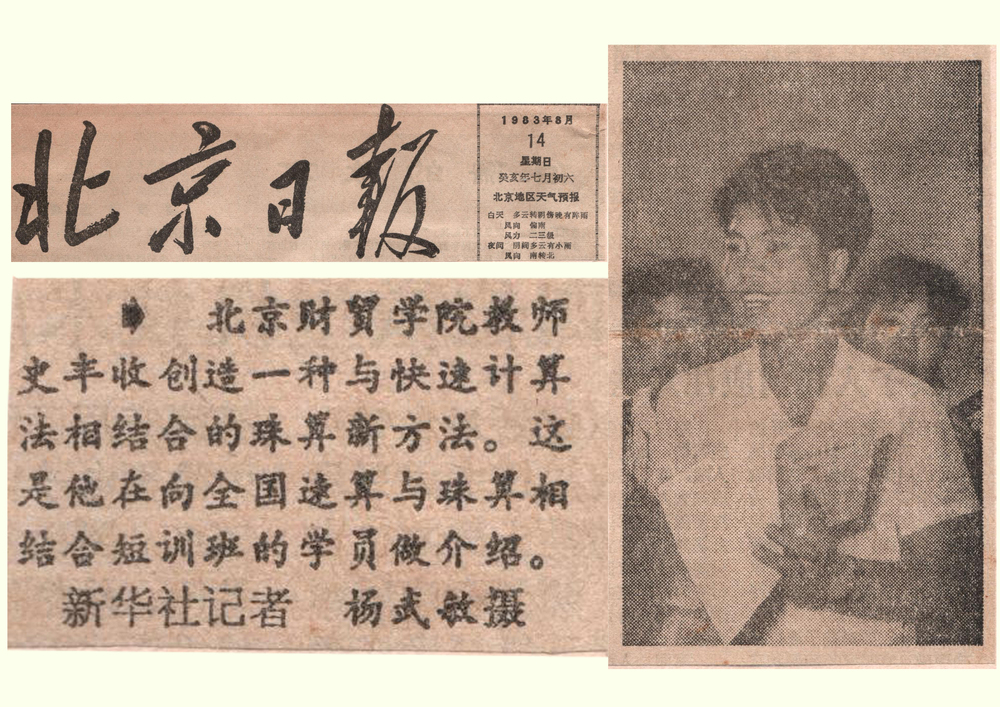 北京日报
1983年8月
14
星期日
癸亥年七月初六
北京地区天气预报
白天 多云转阴傍晚有阵雨
风向 偏南
风力 二三级
夜间 阴间多云有小雨
风向 南转北
北京财贸学院教师
史丰收创造一种与快速计算
法相结合的珠算新方法。这
是他在向全国速算与珠算相
结合短训班的学员做介绍。
新华社记者 杨武敏摄